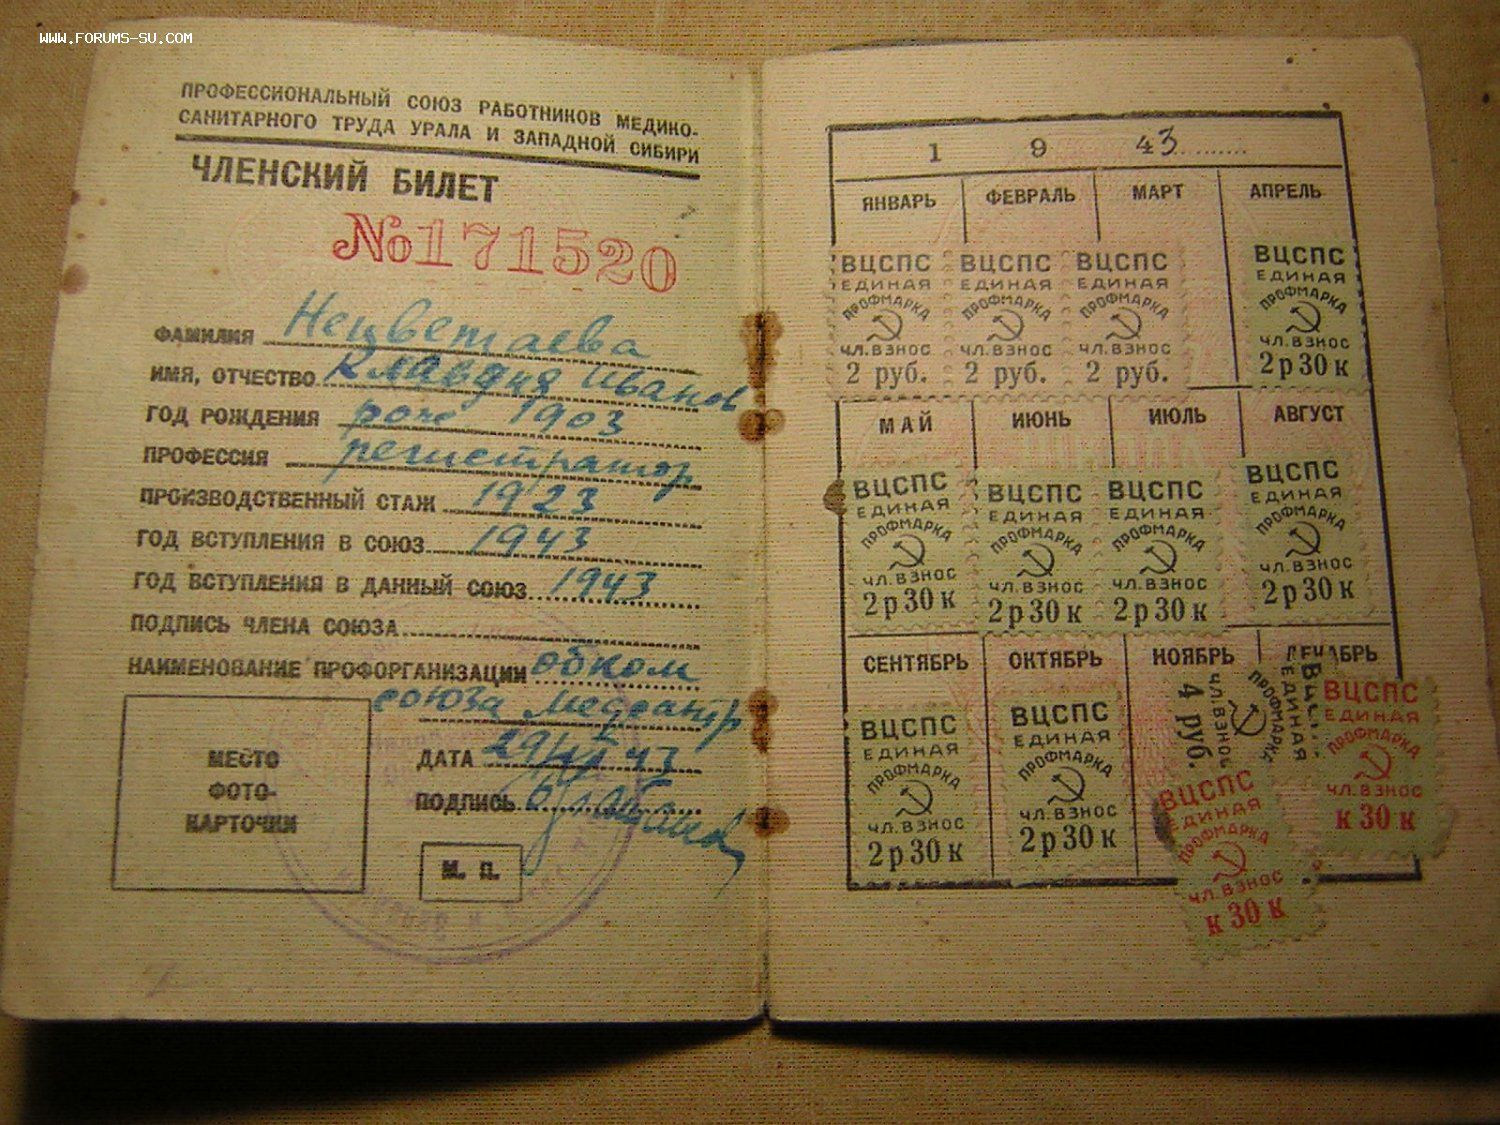 WWW.FORUMS-SU.COM
ПРОФЕССИОНАЛЬНЫЙ СОЮЗ РАБОТНИКОВ МЕДИКО-
САНИТАРНОГО ТРУДА УРАЛА И ЗАПАДНОЙ СИБИРИ
ЧЛЕНСКИЙ БИЛЕТ
№171520
ФАМИЛИЯ Нецветаева
ИМЯ, ОТЧЕСТВО Клавдия Иванов
ГОД РОЖДЕНИЯ 1903
ПРОФЕССИЯ регистратор
ПРОИЗВОДСТВЕННЫЙ СТАЖ 1923
ГОД ВСТУПЛЕНИЯ В СОЮЗ 1943
ГОД ВСТУПЛЕНИЯ В ДАННЫЙ СОЮЗ 1943
ПОДПИСЬ ЧЛЕНА СОЮЗА
НАИМЕНОВАНИЕ ПРОФОРГАНИЗАЦИИ обком
союза Медсантр
МЕСТО
ФОТО-
КАРТОЧКИ
ДАТА 43
ПОДПИСЬ
М. П.
1 9 43
ЯНВАРЬ ФЕВРАЛЬ МАРТ АПРЕЛЬ
ВЦСПС ВЦСПС ВЦСПС ВЦСПС
ЕДИНАЯ ЕДИНАЯ ЕДИНАЯ ЕДИНАЯ
ПРОФМАРКА ПРОФМАРКА ПРОФМАРКА ПРОФМАРКА
ЧЛ.ВЗНОС ЧЛ.ВЗНОС ЧЛ.ВЗНОС ЧЛ.ВЗНОС
2 руб. 2 руб. 2 руб. 2р30к
МАЙ ИЮНЬ ИЮЛЬ АВГУСТ
ВЦСПС ВЦСПС ВЦСПС ВЦСПС
ЕДИНАЯ ЕДИНАЯ ЕДИНАЯ ЕДИНАЯ
ПРОФМАРКА ПРОФМАРКА ПРОФМАРКА ПРОФМАРКА
ЧЛ.ВЗНОС ЧЛ.ВЗНОС ЧЛ.ВЗНОС ЧЛ.ВЗНОС
2р30к 2р30к 2р30к 2р30к
СЕНТЯБРЬ ОКТЯБРЬ НОЯБРЬ ДЕКАБРЬ
ВЦСПС ВЦСПС
ЕДИНАЯ ЕДИНАЯ
ПРОФМАРКА ПРОФМАРКА
ЧЛ.ВЗНОС ЧЛ.ВЗНОС
2р30к 2р30к
ЕДИНАЯ
ПРОФМАРКА
ЧЛ.ВЗНОС
4 руб.
ВЦСПС
ЕДИНАЯ
ПРОФМАРКА
ЧЛ.ВЗНОС
к 30 к
ВЦСПС
ЕДИНАЯ
ПРОФМАРКА
ЧЛ.ВЗНОС
к 30 к